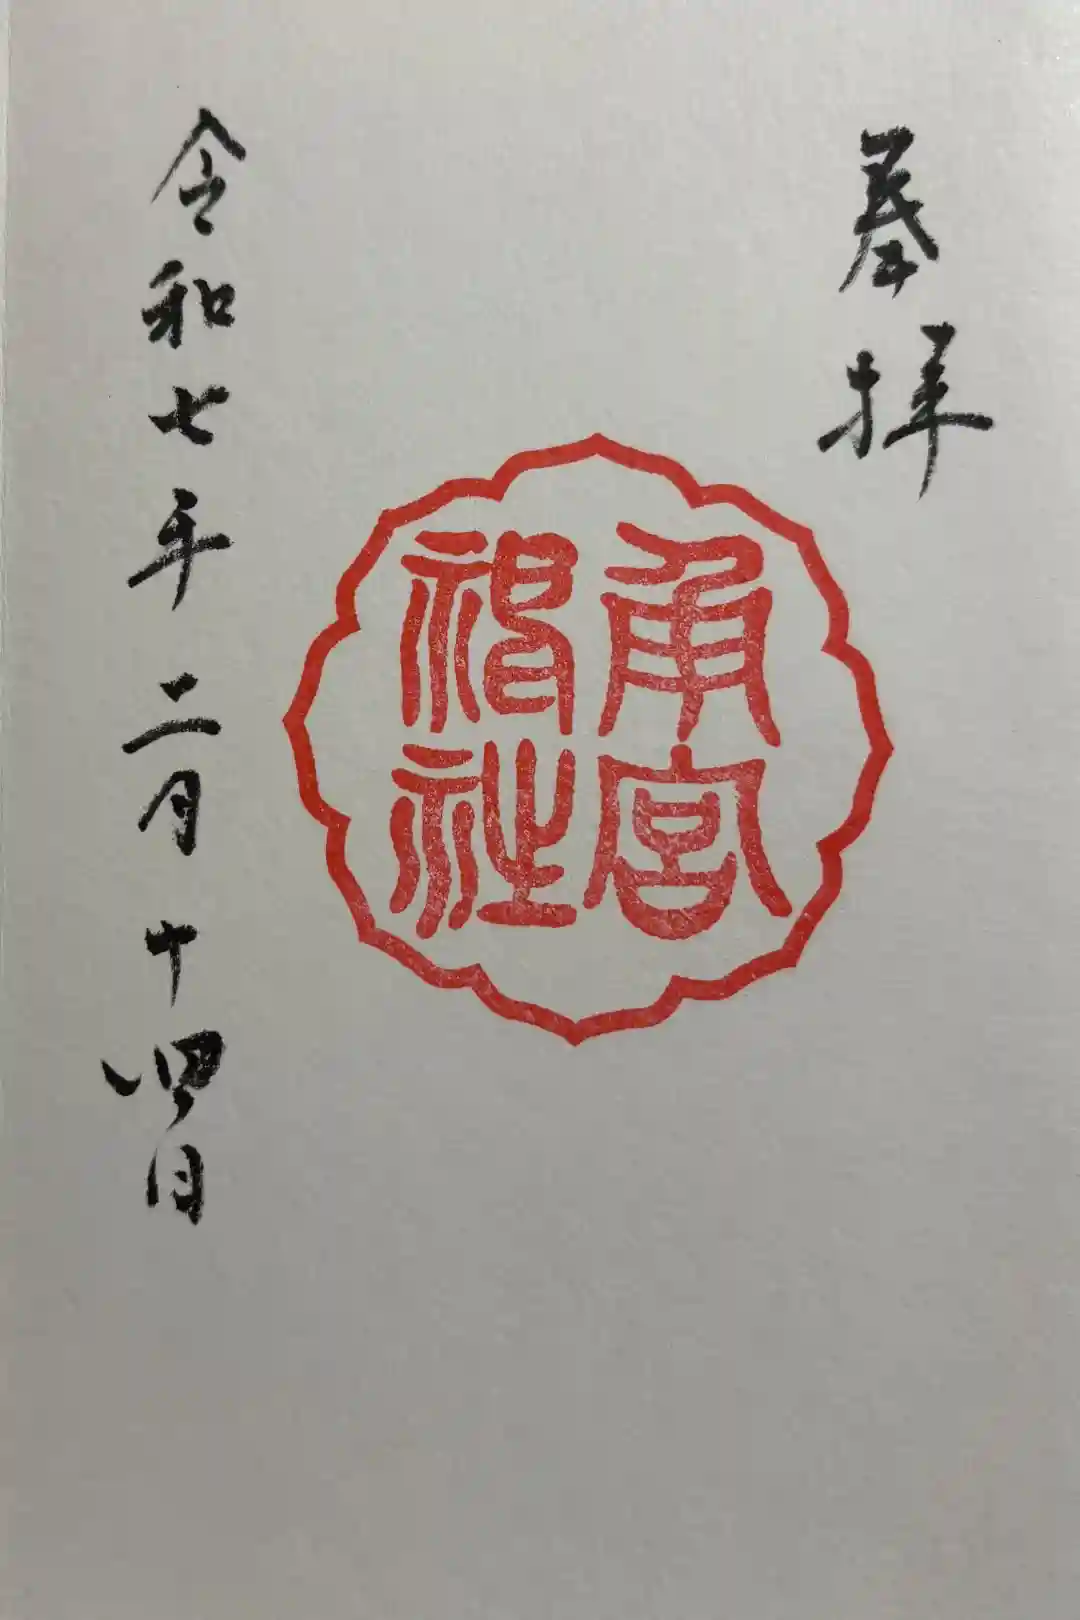 奉拝
角宮
神社
令和七年二月十四日